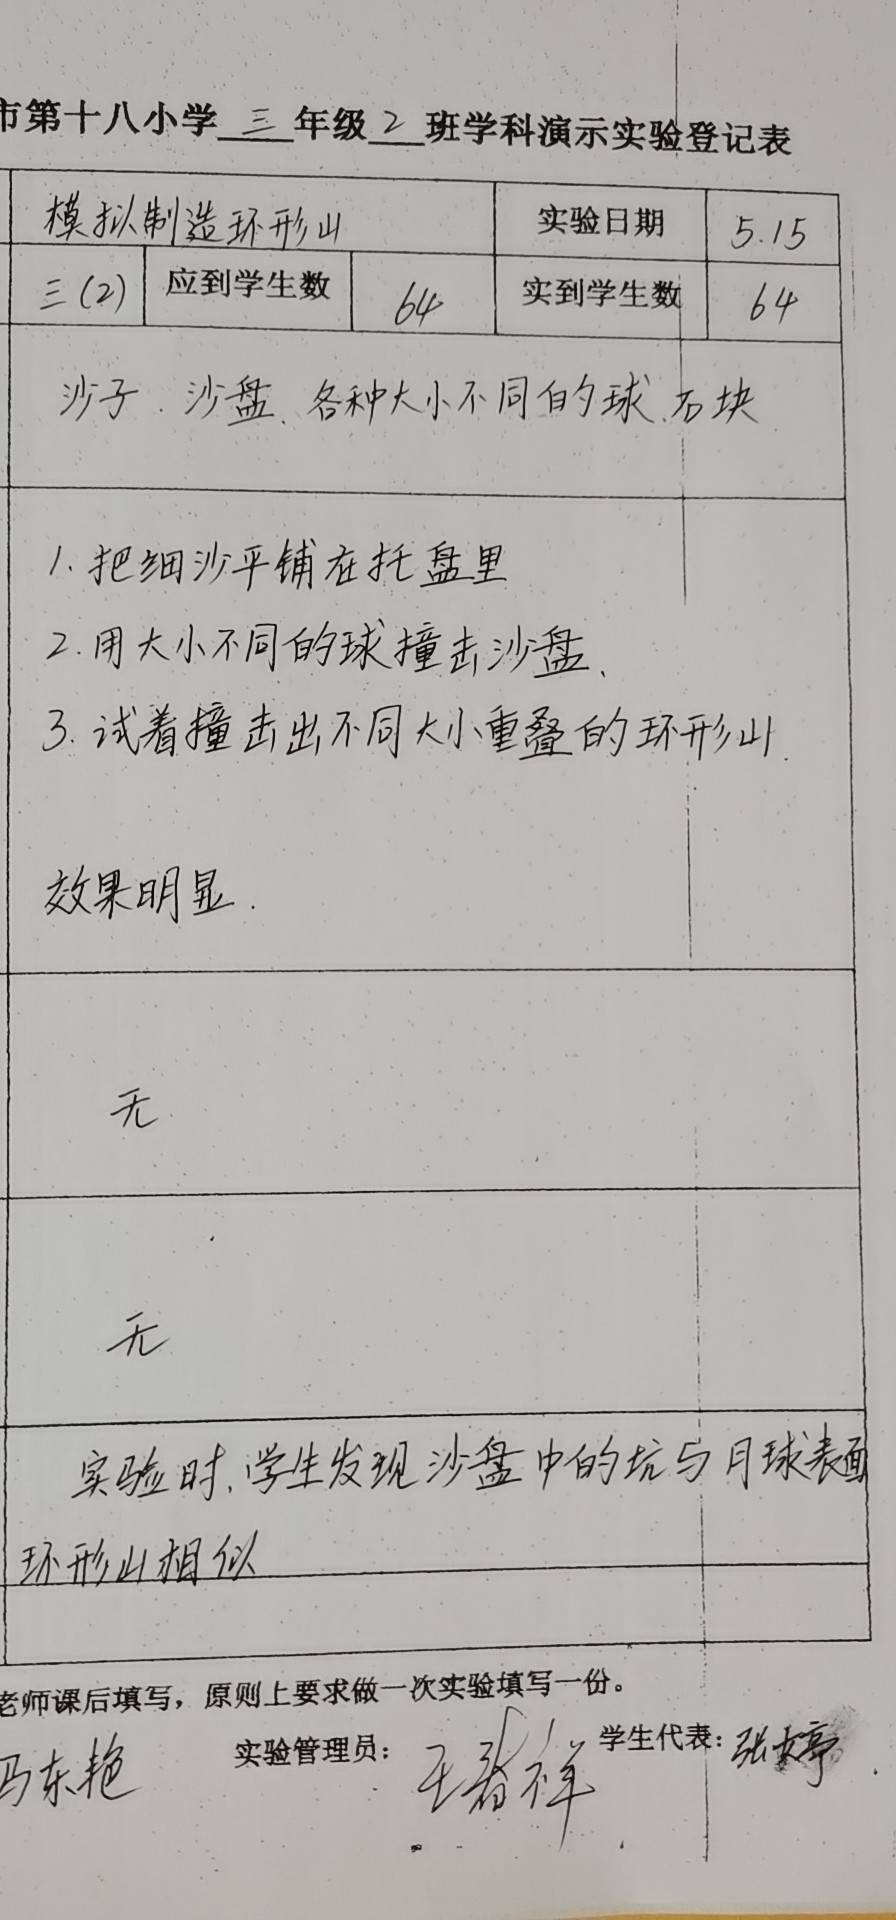 市第十八小学三年级2班学科演示实验登记表
模拟制造环形山 实验日期 5.15
三(2) 应到学生数 64 实到学生数 64
沙子、沙盘、各种大小不同的球、石块
1.把细沙平铺在托盘里
2.用大小不同的球撞击沙盘、
3.试着撞击出不同大小重叠的环形山.
效果明显.
无
无
实验时、学生发现沙盘中的坑与月球表面
环形山相似
老师课后填写，原则上要求做一次实验填写一份。
马东艳 实验管理员： 学生代表：张婷